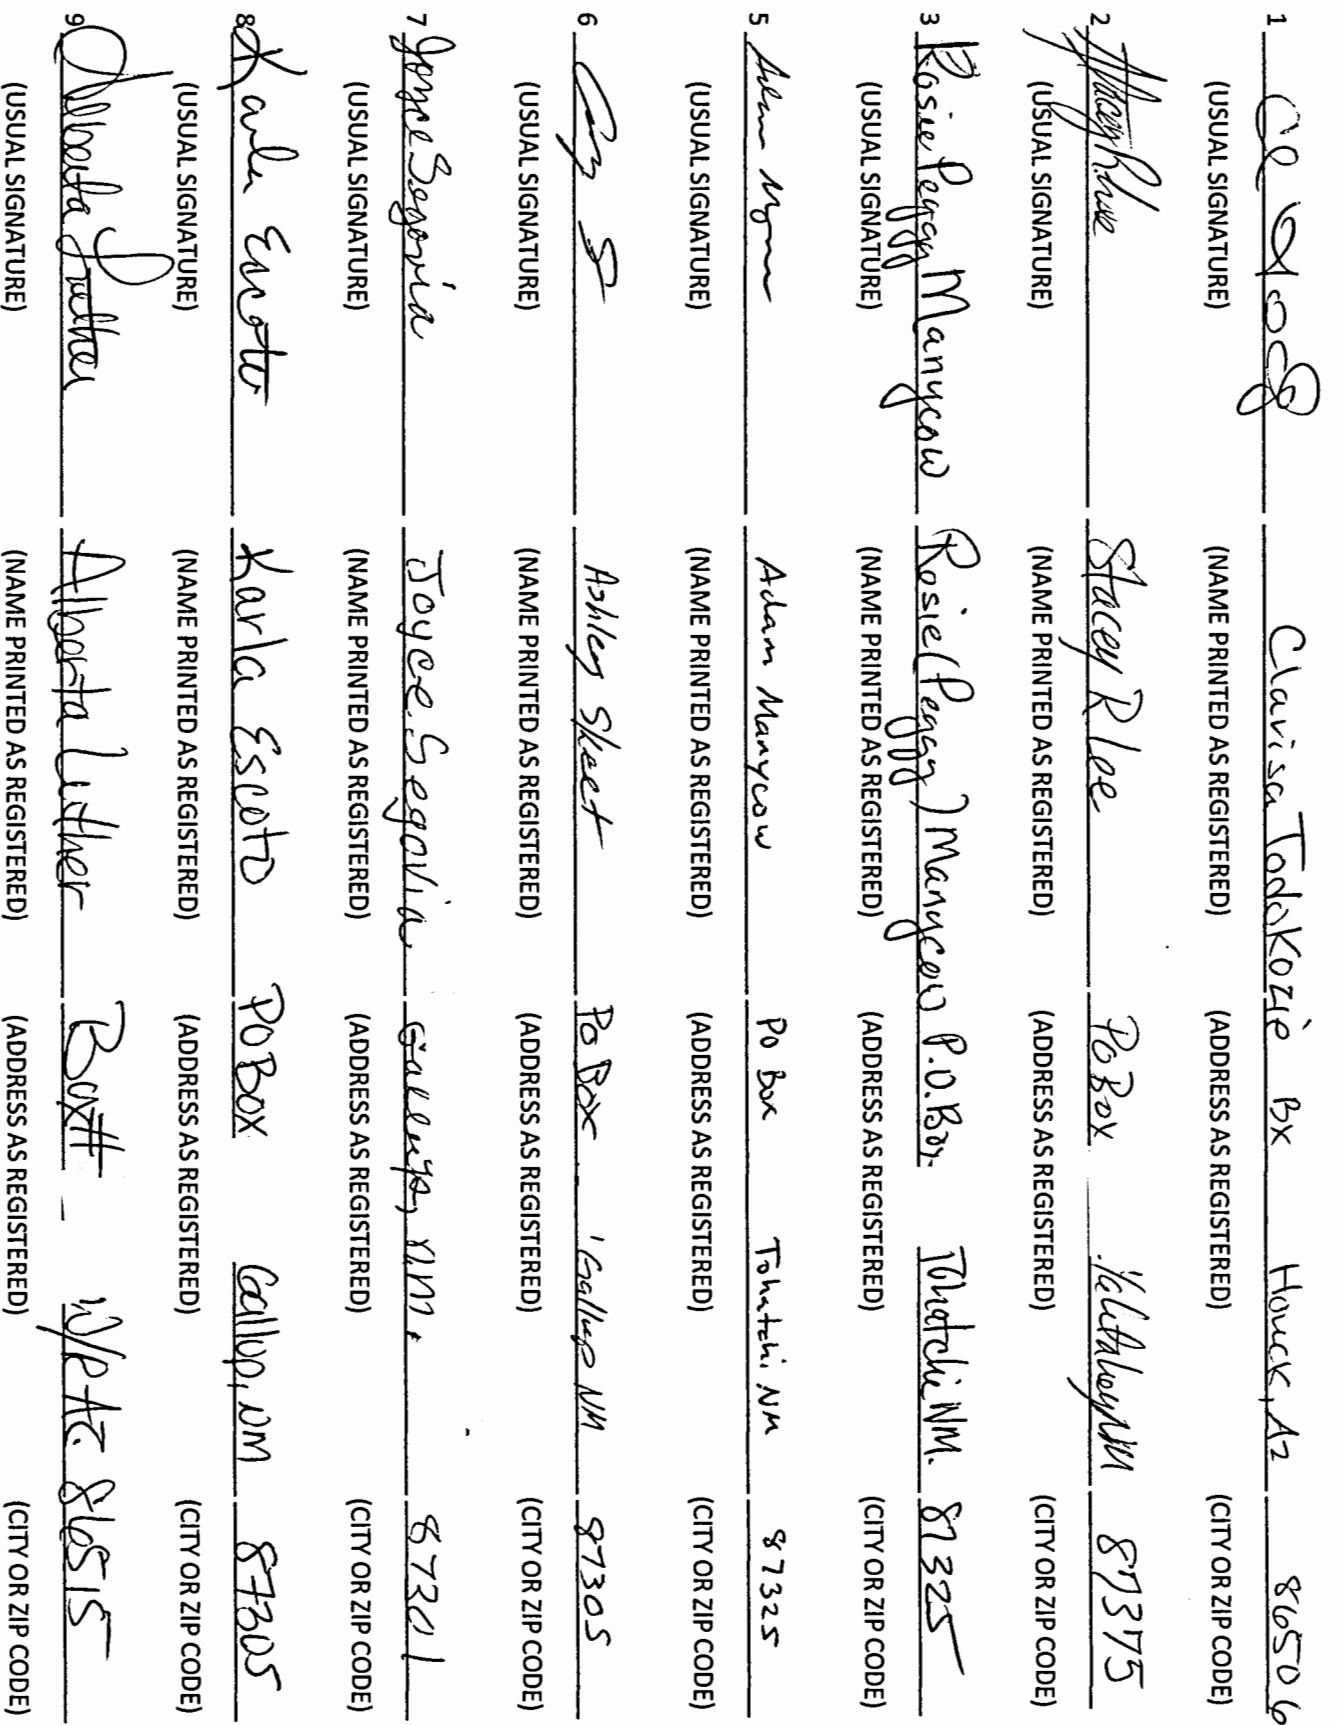 1 Clarisa Todokozie Bx Houck, Az 86506
(USUAL SIGNATURE) (NAME PRINTED AS REGISTERED) (ADDRESS AS REGISTERED) (CITY OR ZIP CODE)
2 Stacey R Loe PO Box Yahtahey NM 87375
(USUAL SIGNATURE) (NAME PRINTED AS REGISTERED) (ADDRESS AS REGISTERED) (CITY OR ZIP CODE)
3 Rosie Peggy Manycow Rosie (Peggy) Manycow P.O. Box Tohatchi NM. 87325
(USUAL SIGNATURE) (NAME PRINTED AS REGISTERED) (ADDRESS AS REGISTERED) (CITY OR ZIP CODE)
5 Adam Manycow PO Box Tohatchi NM 87325
(USUAL SIGNATURE) (NAME PRINTED AS REGISTERED) (ADDRESS AS REGISTERED) (CITY OR ZIP CODE)
6 Ashley Skeet Po Box Gallup NM 87305
(USUAL SIGNATURE) (NAME PRINTED AS REGISTERED) (ADDRESS AS REGISTERED) (CITY OR ZIP CODE)
7 Joyce Segovia Joyce Segovia Gallup, n.m. 87301
(USUAL SIGNATURE) (NAME PRINTED AS REGISTERED) (ADDRESS AS REGISTERED) (CITY OR ZIP CODE)
8 Karla Escoto Karla Escoto PO Box Gallup, NM 87305
(USUAL SIGNATURE) (NAME PRINTED AS REGISTERED) (ADDRESS AS REGISTERED) (CITY OR ZIP CODE)
9 Alberta Luther Alberta Luther Box# W/R Az. 86515
(USUAL SIGNATURE) (NAME PRINTED AS REGISTERED) (ADDRESS AS REGISTERED) (CITY OR ZIP CODE)